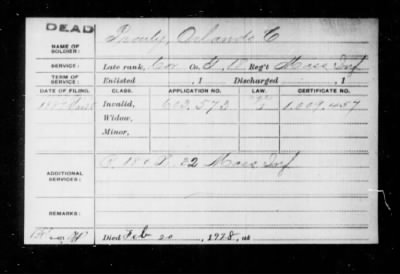 DEAD
NAME OF SOLDIER: Prouty, Orlando C
SERVICE: Late rank, Cor Co. G, 15 Reg't Mass Inf
TERM OF SERVICE: Enlisted , 1 Discharged , 1
DATE OF FILING. CLASS. APPLICATION NO. LAW. CERTIFICATE NO.
Invalid, 603,573 1,009,457
Widow,
Minor,
ADDITIONAL SERVICES: 22 Mass Inf
REMARKS:
Died Feb 20 , 1928, at